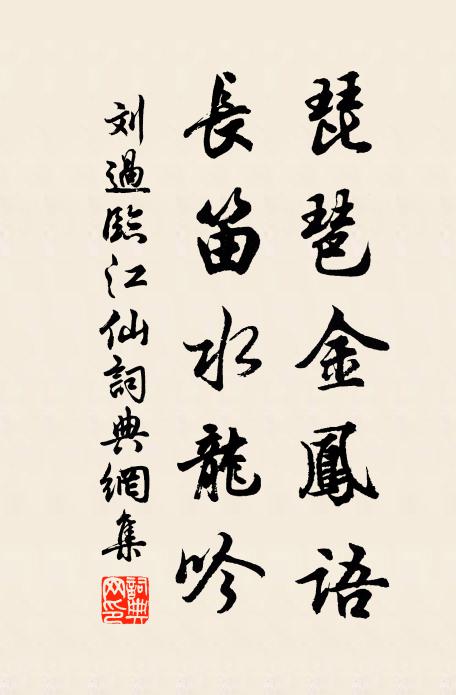 琵琶金鳳語
長笛水龍吟
刘過臨江仙詞典網集
詞典网印